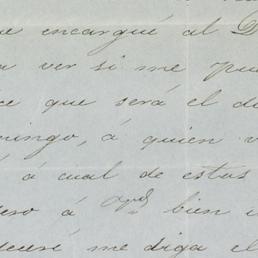 e encargué al D
a ver si me pu
ce que será el d
mingo, á quien v
é á cual de estas
ero á bien
eceré me diga el